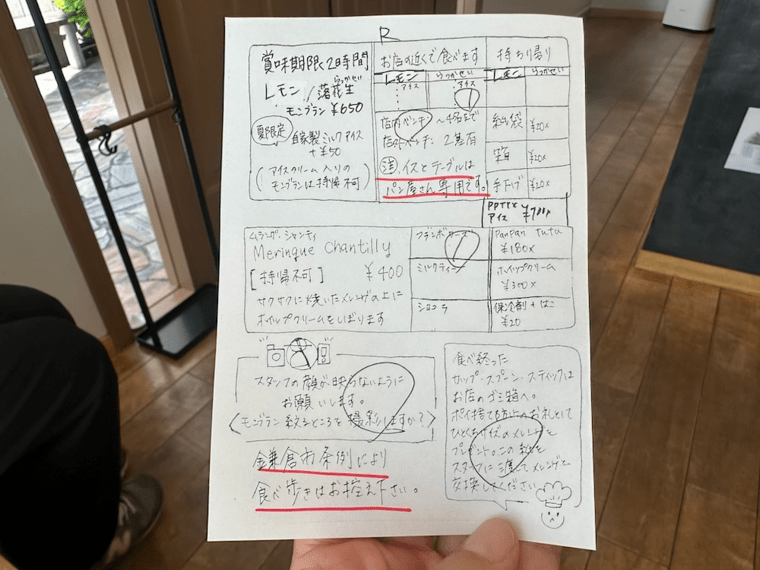 R
賞味期限2時間
レモン/落花生
らっかせい
モンブラン ¥650
夏限定 自家製ミルクアイス
+¥50
(アイスクリーム入りの
モンブランは持帰不可)
お店の近くで食べます
レモン
アイス
らっかせい
アイス
1
店内ベンチ ~4名まで
店外ベンチ 2基有
注 イスとテーブルは
パン屋さん専用です。
持ち帰り
レモン
らっかせい
紙袋 ¥20x
箱 ¥20x
手下げ ¥20x
アイス ¥700x
ムラング・シャンティ
Meringue Chantilly
[持帰不可] ¥400
サクサクに焼いたメレンゲの上に
ホイップクリームをしぼります
1
ミルクティー
ショコラ
panpan tutu
¥180x
ホイップクリーム
¥300x
保冷剤+はこ
¥20
スタッフの顔が映らないように
お願いします。
〈モンブラン絞るところを撮影しますか?〉
鎌倉市条例により
食べ歩きはお控え下さい。
食べ終った
カップ・スプーン・スティックは
お店のゴミ箱へ。
ポイ捨て防止のお礼として
ひとくちサイズのメレンゲを
プレゼント。この紙を
スタッフに渡してメレンゲと
交換してください